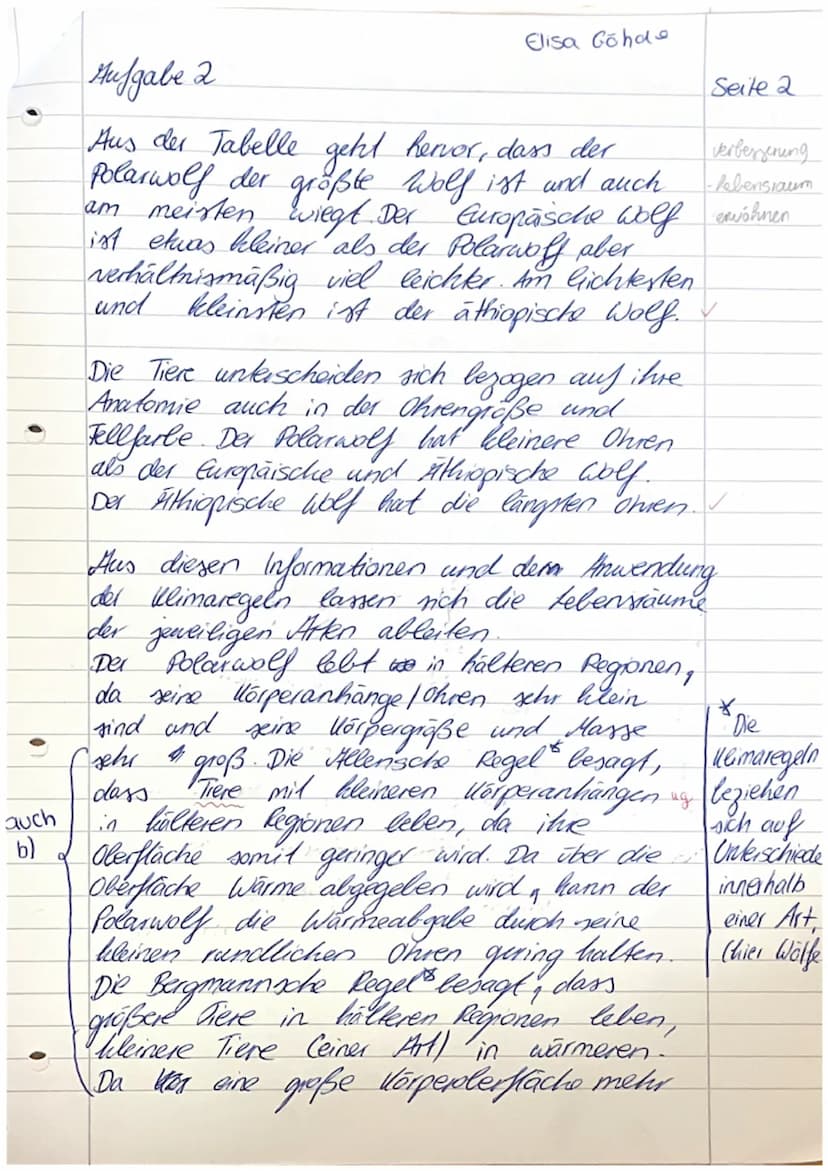 Elisa Göhde
Aufgabe 2
Seite 2
Aus der Tabelle geht hervor, dass der
Polarwolf der größte Wolf ist und auch
am meisten wiegt. Der Europäische Wolf
ist etwas kleiner als der Polarwolf aber
verhältnismäßig viel leichter. Am leichtesten
und kleinsten ist der äthiopische Wolf.
Verbesserung
- Lebensraum
erwähnen
Die Tiere unterscheiden sich bezogen auf ihre
Anatomie auch in der Ohrengröße und
Fellfarbe. Der Polarwolf hat kleinere Ohren
als der Europäische und Äthiopische Wolf.
Der Äthiopische Wolf hat die längsten Ohren.
Aus diesen Informationen und dem Anwendung
der Klimaregeln lassen sich die Lebensräume
der jeweiligen Arten ableiten.
Der Polarwolf lebt in kälteren Regionen,
da seine Körperanhänge/Ohren sehr klein
sind und seine Körpergröße und Masse
sehr groß. Die Allensche Regel* besagt,
dass Tiere mit kleineren Körperanhängen ug
in kälteren Regionen leben, da ihre
Oberfläche somit geringer wird. Da über die
Oberfläche Wärme abgegeben wird, kann der
Polarwolf die Wärmeabgabe durch seine
kleinen rundlichen Ohren gering halten.
Die Bergmannsche Regel* besagt, dass
größere Tiere in kälteren Regionen leben,
kleinere Tiere (einer Art) in wärmeren.
Da eine große Körperoberfläche mehr
auch
b)
* Die
Klimaregeln
beziehen
sich auf
Unterschiede
innerhalb
einer Art.
(hier Wölfe